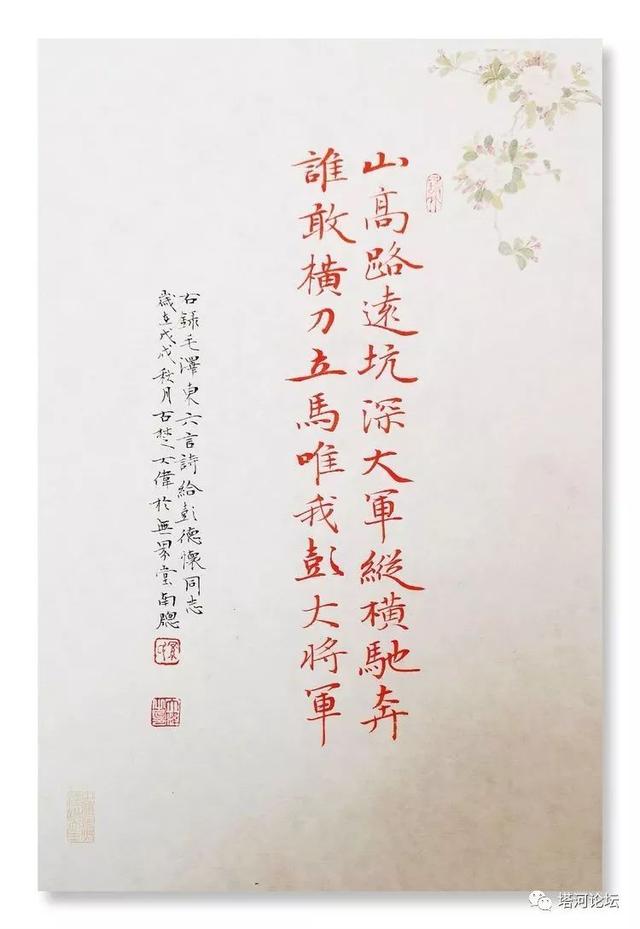 山高路遠坑深大軍縱橫馳奔
誰敢橫刀立馬唯我彭大將軍
右錄毛澤東六言詩給彭德懷同志
歲在戊戌秋月古楚大偉於無界堂南牕
塔河论坛